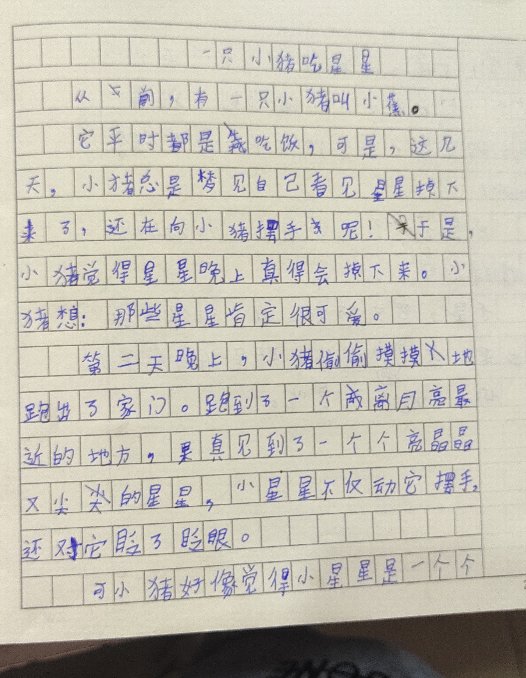 一只小猪吃星星
从前,有一只小猪叫小蕉。
它平时都是吃饭,可是,这几
天,小猪总是梦见自己看见星星掉下
来了,还在向小猪摆手呢!于是,
小猪觉得星星晚上真得会掉下来。小
猪想:那些星星肯定很可爱。
第二天晚上,小猪偷偷摸摸地
跑出了家门。跑到了一个离月亮最
近的地方,果真见到了一个个亮晶晶
又尖的星星,小星星不仅动它摆手,
还对它眨了眨眼。
可小猪好像觉得小星星是一个个